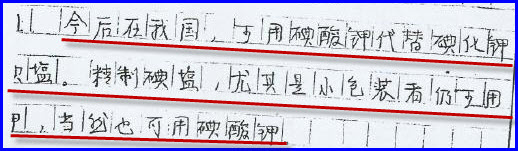 1. 今后在我国，可用碘酸钾代替碘化钾
盐。精制碘盐，尤其是小包装者仍可用
，当然也可用碘酸钾